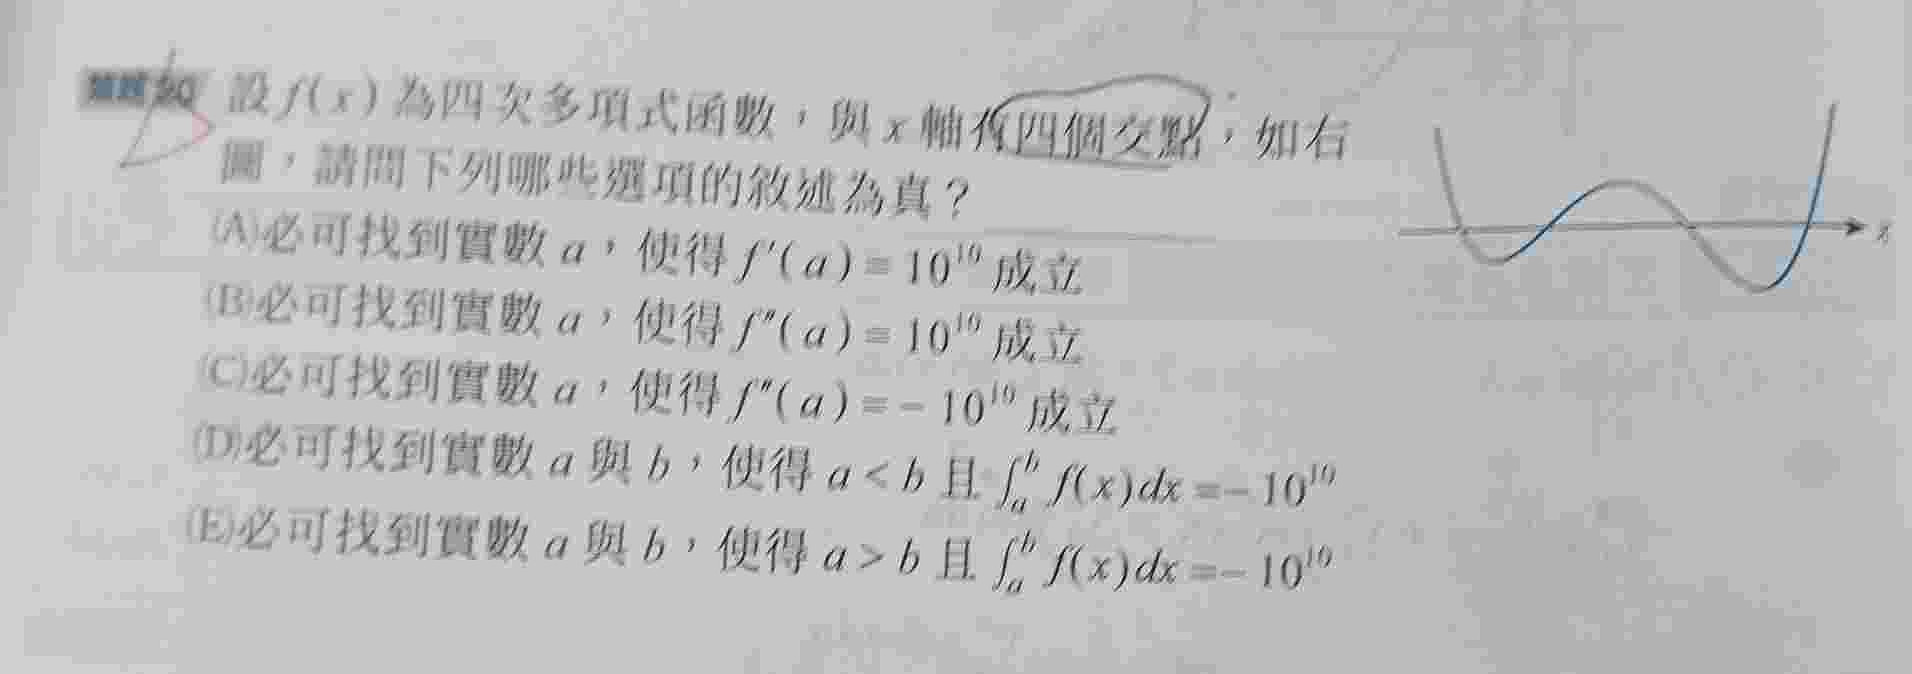 設 f(x) 為四次多項式函數，與 x 軸有四個交點，如右
圖，請問下列哪些選項的敘述為真？
(A)必可找到實數 a，使得 f′(a) = 10¹⁰ 成立
(B)必可找到實數 a，使得 f″(a) = 10¹⁰ 成立
(C)必可找到實數 a，使得 f″(a) = − 10¹⁰ 成立
(D)必可找到實數 a 與 b，使得 a < b 且 ∫ₐᵇ f(x)dx = − 10¹⁰
(E)必可找到實數 a 與 b，使得 a > b 且 ∫ₐᵇ f(x)dx = − 10¹⁰
x